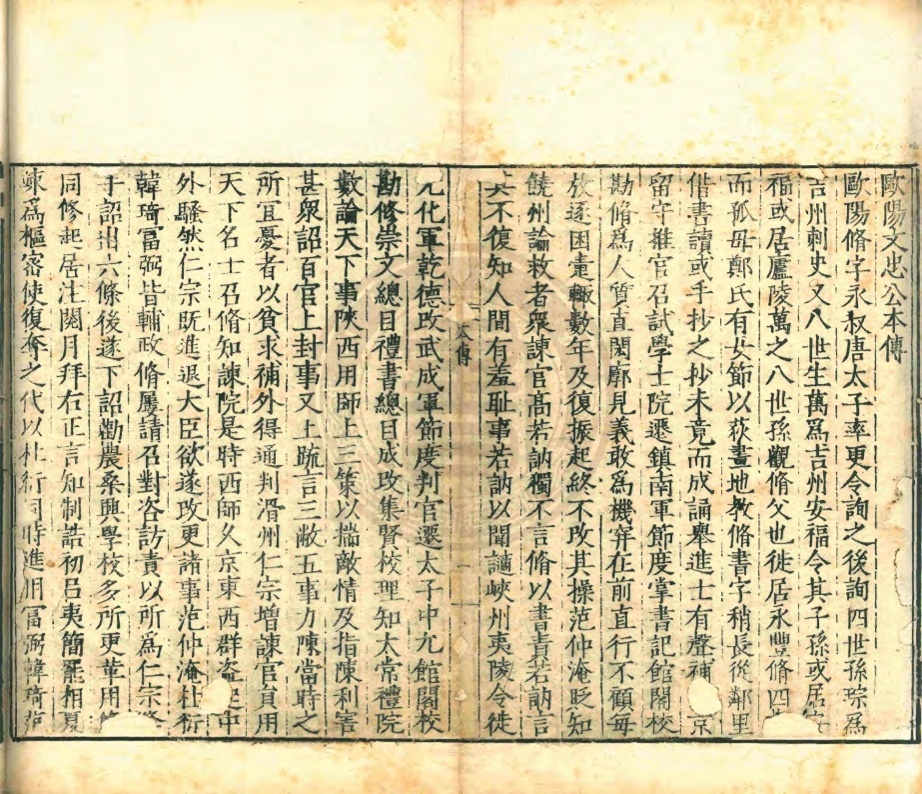 歐陽文忠公本傳
歐陽脩字永叔唐太子率更令詢之後詢四世孫琮爲
吉州刺史又八世生萬爲吉州安福令其子孫或居安
福或居廬陵萬之八世孫觀脩父也徙居永豐脩四
而孤母鄭氏有女節以荻畫地教脩書字稍長從鄰里
借書讀或手抄之抄未竟而成誦舉進士有聲補京
留守推官召試學士院遷鎮南軍節度掌書記館閣校
勘脩爲人質直閎廓見義敢爲機穽在前直行不顧每
放逐困臺輒數年及復振起終不改其操范仲淹貶知
饒州論救者衆諫官高若訥獨不言脩以書責若訥言
其不復知人間有羞恥事若訥以聞謫峽州夷陵令徙
本傳
一
光化軍乾德改武成軍節度判官遷太子中允館閣校
勘修崇文總目禮書總目成改集賢校理知太常禮院
數論天下事陝西用師上三策以揣敵情及指陳利害
甚衆詔百官上封事又上疏言三敝五事力陳當時之
所宜憂者以貧求補外得通判滑州仁宗增諫官員用
天下名士召脩知諫院是時西師久京東西群盜起中
外騷然仁宗既進退大臣欲遂改更諸事范仲淹杜衍
韓琦富弼皆輔政脩屢請召對咨訪責以所爲仁宗
手詔出六條後遂下詔勸農桑興學校多所更革用
同修起居注閱月拜右正言知制誥初呂夷簡罷相夏
竦爲樞密使復奪之代以杜衍同時進用富弼韓琦范